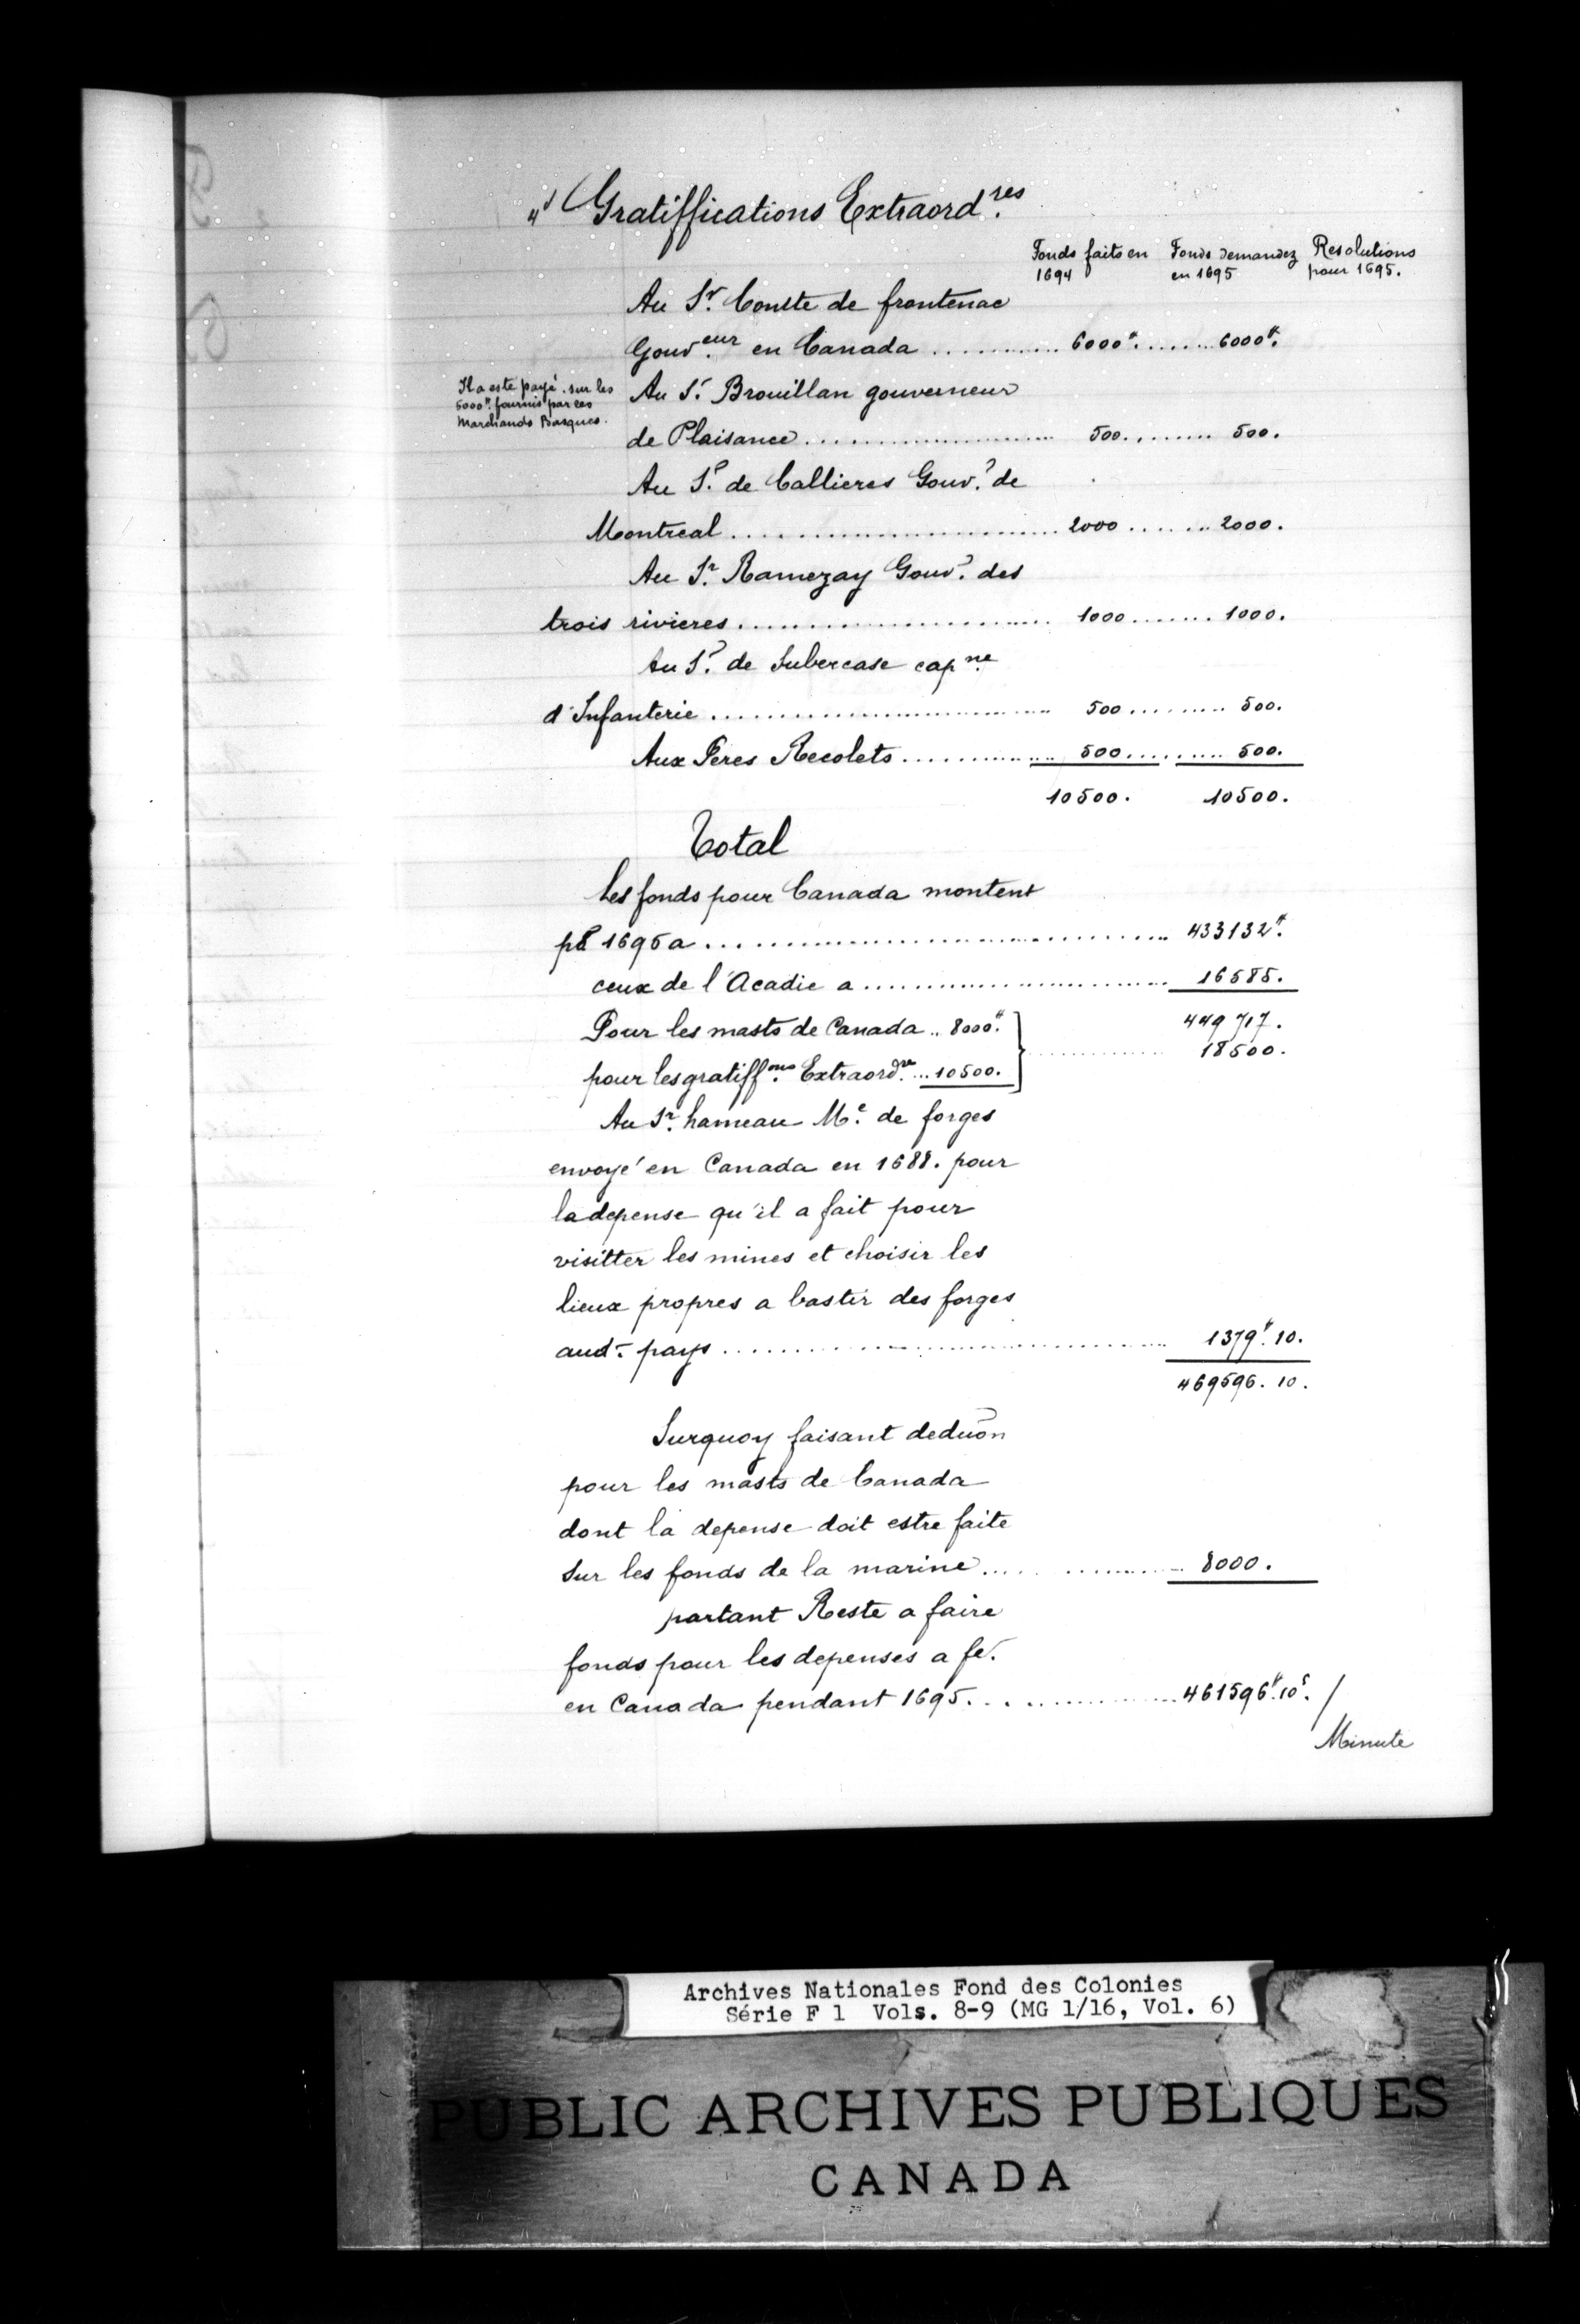 4d Gratiffications Extraordres.
Fonds faits en 1694
Fonds demandez en 1695
Resolutions pour 1695.
Au Sr. Comte de frontenac
Gouveur. en Canada ............ 6000#. ...... 6000#.
Il a esté payé sur les
5000#. fournis par les
Marchands Basques.
Au Sr. Brouillan gouverneur
de Plaisance ........................ 500. ........ 500.
Au Sr. de Callieres Gouvr. de
Montreal .............................. 2000 ....... 2000.
Au Sr. Ramezay Gouvr. des
trois rivieres ............................ 1000 ....... 1000.
Au Sr. de Subercase capne.
d'Infanterie ................................ 500 ......... 500.
Aux Peres Recolets .............. 500 ......... 500.
10500. 10500.
Total
Les fonds pour Canada montent
pr 1695 a ........................................ 433132#.
ceux de l'Acadie a ............................ 16585.
449717.
Pour les masts de Canada .. 8000#. } ............ 18500.
pour les gratiffons. Extraordre. ... 10500.
Au Sr. hameau Me. de forges
envoyé en Canada en 1688. pour
la depense qu'il a fait pour
visitter les mines et choisir les
lieux propres a bastir des forges
aud. pays ........................................ 1379#. 10.
469596. 10.
Surquoy faisant deduōn
pour les masts de Canada
dont la depense doit estre faite
sur les fonds de la marine ................ 8000.
partant Reste a faire
fonds pour les depenses a fe.
en Canada pendant 1695. .................. 461596#. 10s. /
Minute
Archives Nationales Fond des Colonies
Série F 1 Vols. 8-9 (MG 1/16, Vol. 6)
PUBLIC ARCHIVES PUBLIQUES
CANADA